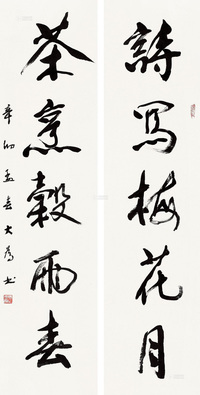 詩寫梅花月
茶烹穀雨春
辛卯孟春大為书